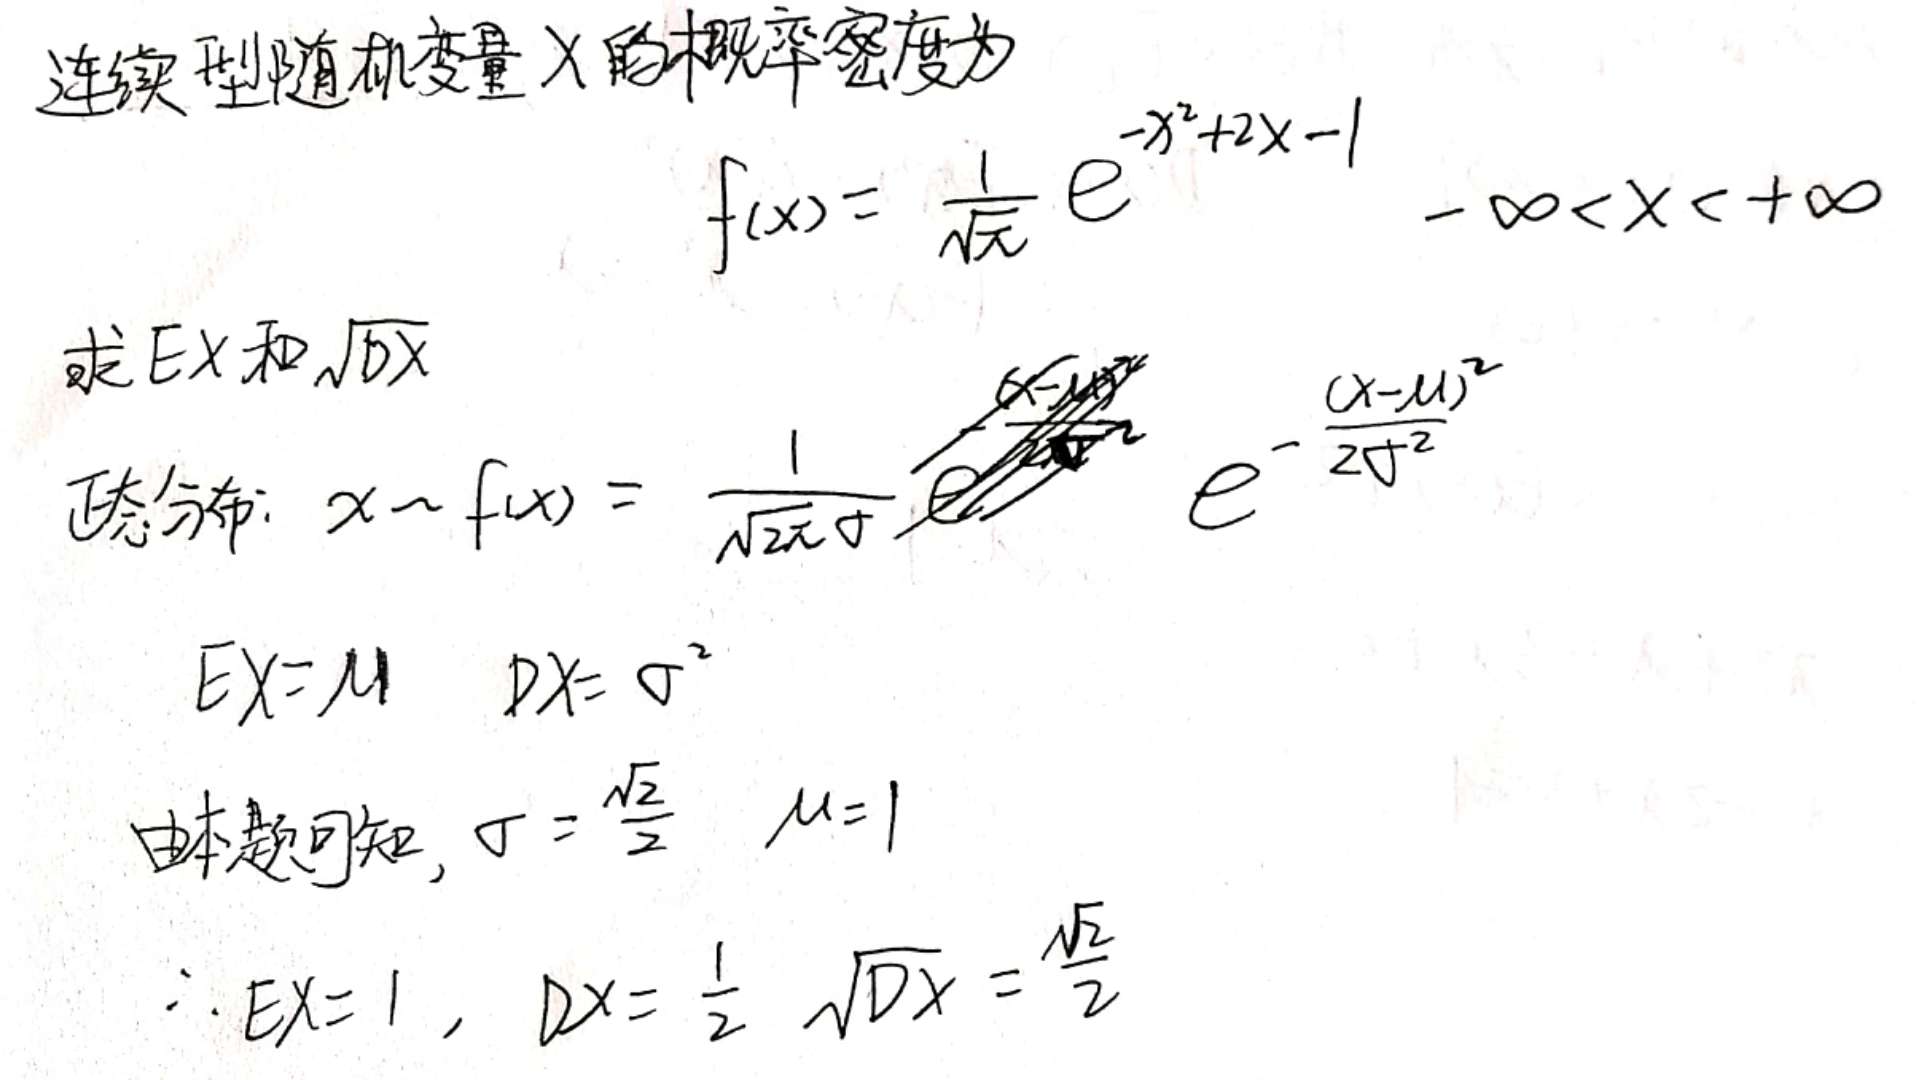 连续型随机变量X的概率密度为
f(x) = 1/√π e^(-x²+2x-1) -∞<x<+∞
求EX和√DX
正态分布: x~f(x) = 1/(√2π σ) e^(-(x-μ)²/2σ²)
EX=μ DX=σ²
由本题可知, σ=√2/2 μ=1
∴ EX=1, DX=1/2 √DX=√2/2